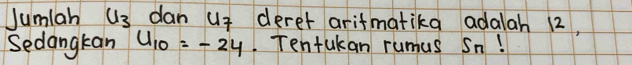 Jumlah U₃ dan U₇ deret aritmatika adalah 12,
Sedangkan U₁₀ = -24. Tentukan rumus Sn!